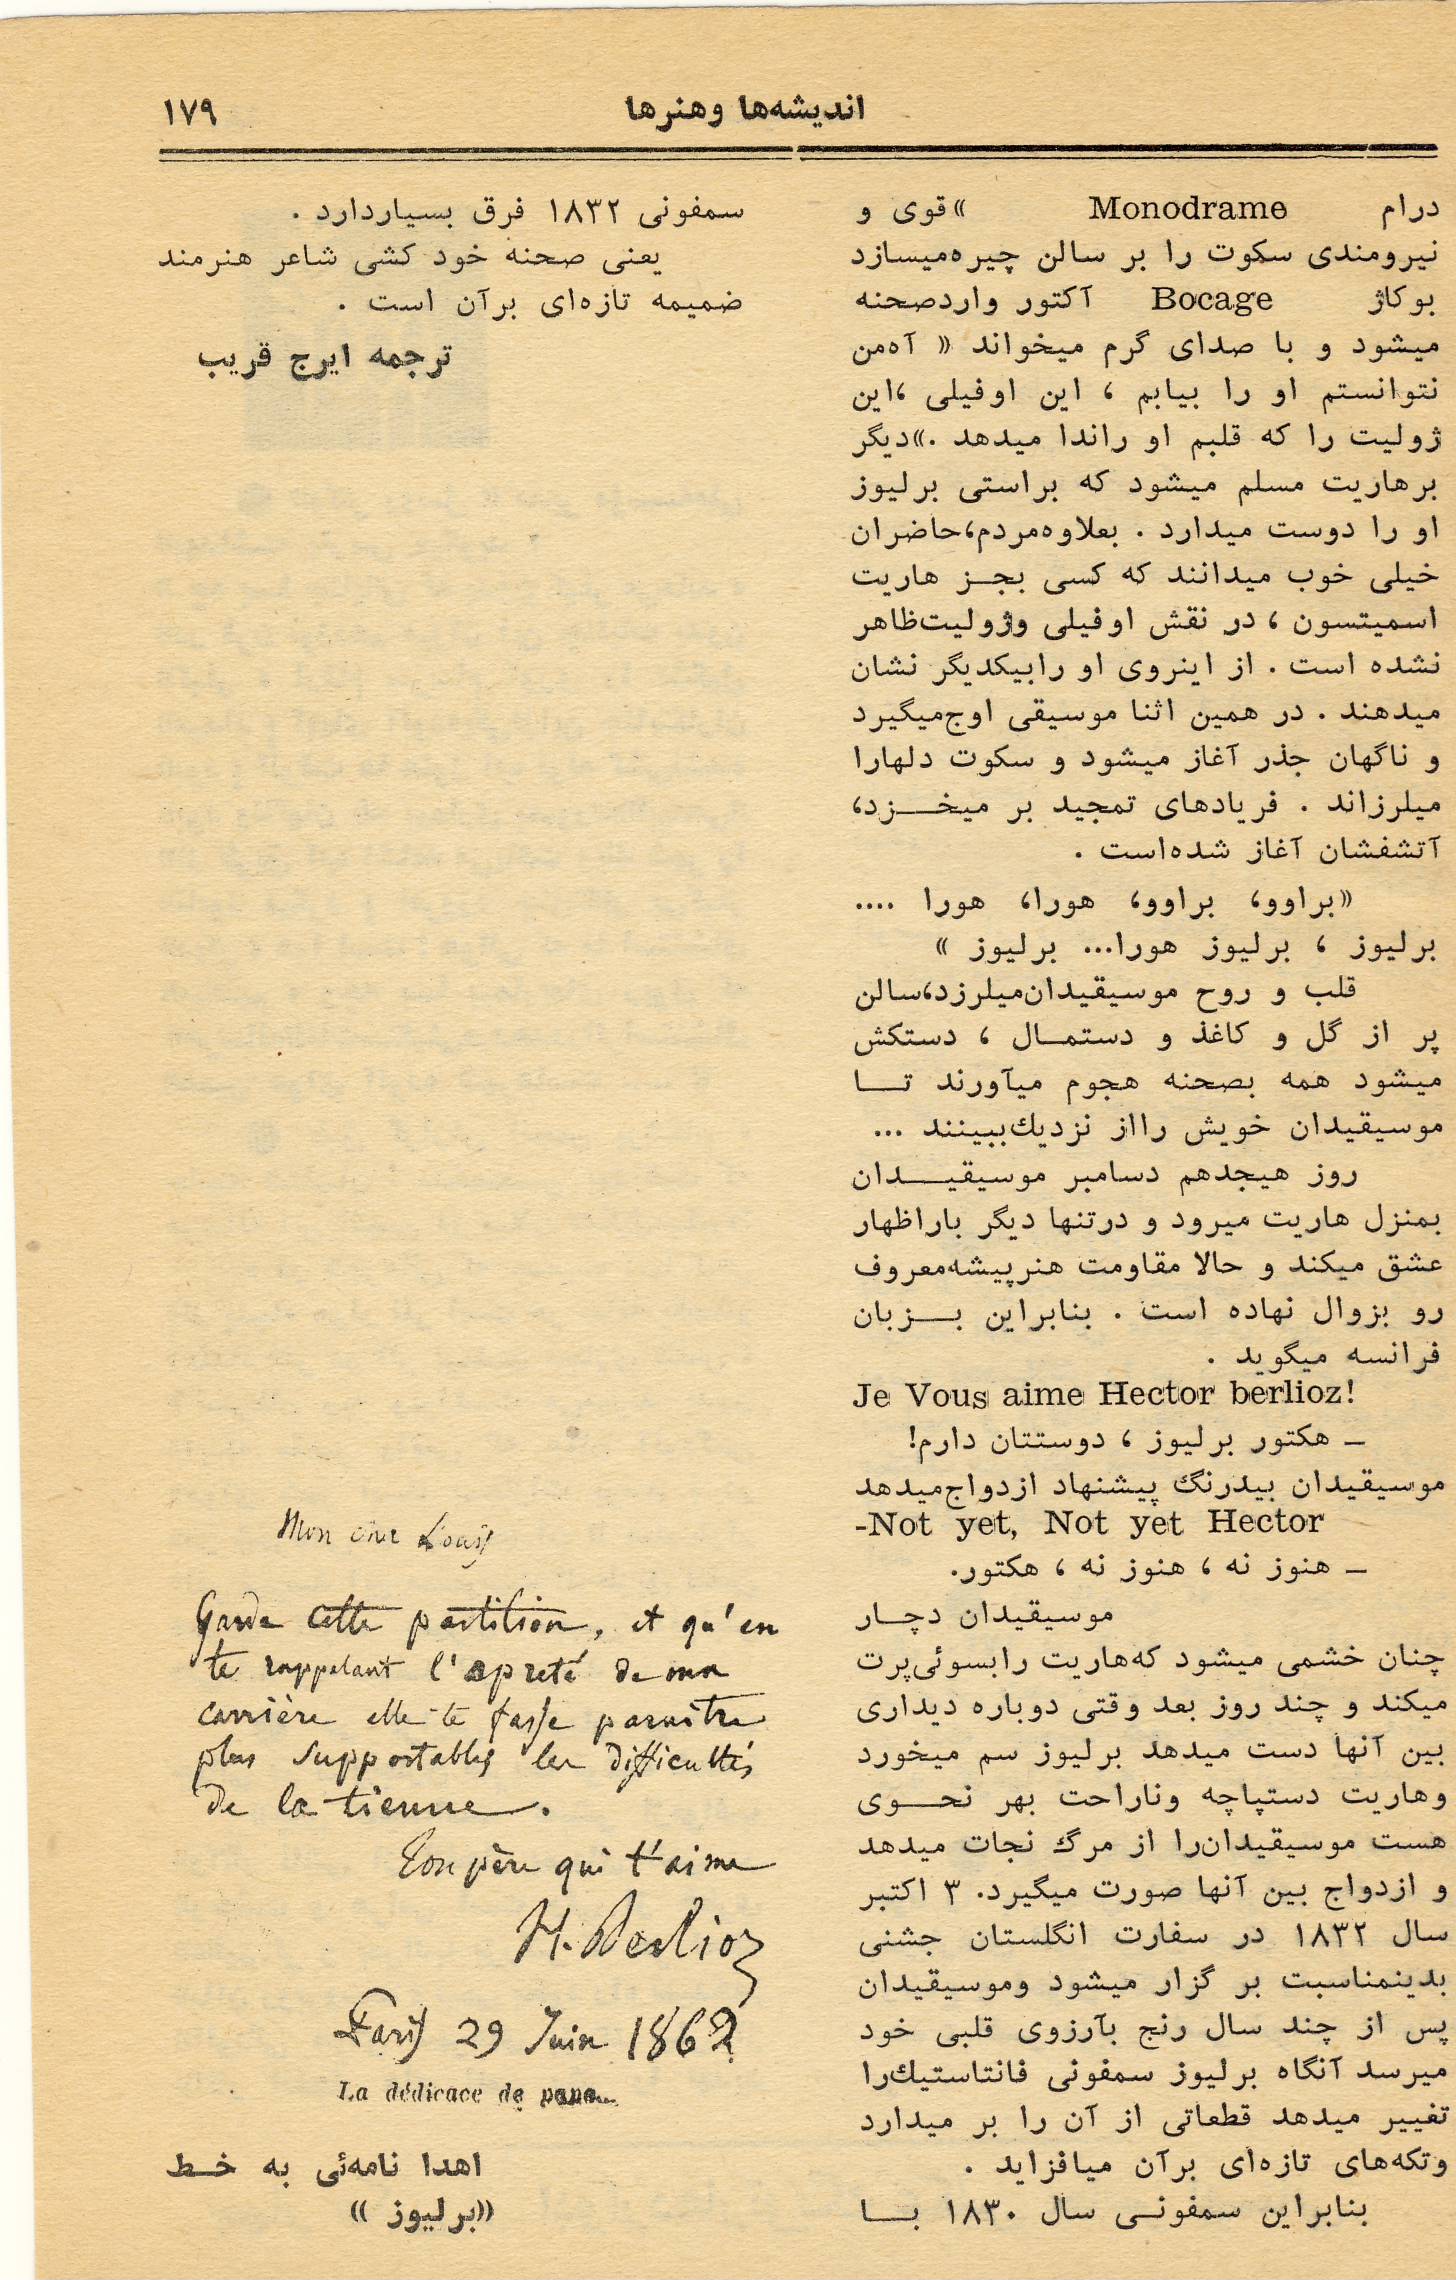 اندیشه‌ها وهنرها
۱۷۹
درام Monodrame » قوی و
نیرومندی سکوت را بر سالن چیره‌میسازد
بوکاژ Bocage آکتور واردصحنه
میشود و با صدای گرم میخواند « آه‌من
نتوانستم او را بیابم ، این اوفیلی ،این
ژولیت را که قلبم او راندا میدهد .»دیگر
برهاریت مسلم میشود که براستی برلیوز
او را دوست میدارد . بعلاوه‌مردم،حاضران
خیلی خوب میدانند که کسی بجز هاریت
اسمیتسون ، در نقش اوفیلی وژولیت‌ظاهر
نشده است . از اینروی او رابیکدیگر نشان
میدهند . در همین اثنا موسیقی اوج‌میگیرد
و ناگهان جذر آغاز میشود و سکوت دلهارا
میلرزاند . فریادهای تمجید بر میخزد،
آتشفشان آغاز شده‌است .
«براوو، براوو، هورا، هورا ....
برلیوز ، برلیوز هورا... برلیوز »
قلب و روح موسیقیدان‌میلرزد،سالن
پر از گل و کاغذ و دستمال ، دستکش
میشود همه بصحنه هجوم میآورند تا
موسیقیدان خویش رااز نزدیك‌ببینند ...
روز هیجدهم دسامبر موسیقیدان
بمنزل هاریت میرود و درتنها دیگر باراظهار
عشق میکند و حالا مقاومت هنرپیشه‌معروف
رو بزوال نهاده است . بنابراین بزبان
فرانسه میگوید .
Je Vous aime Hector berlioz!
ـ هکتور برلیوز ، دوستتان دارم!
موسیقیدان بیدرنگ پیشنهاد ازدواج‌میدهد
-Not yet, Not yet Hector
ـ هنوز نه ، هنوز نه ، هکتور.
موسیقیدان دچار
چنان خشمی میشود که‌هاریت رابسوئی‌پرت
میکند و چند روز بعد وقتی دوباره دیداری
بین آنها دست میدهد برلیوز سم میخورد
وهاریت دستپاچه وناراحت بهر نحوی
هست موسیقیدان‌را از مرگ نجات میدهد
و ازدواج بین آنها صورت میگیرد. ۳ اکتبر
سال ۱۸۳۲ در سفارت انگلستان جشنی
بدینمناسبت بر گزار میشود وموسیقیدان
پس از چند سال رنج بآرزوی قلبی خود
میرسد آنگاه برلیوز سمفونی فانتاستیك‌را
تغییر میدهد قطعاتی از آن را بر میدارد
وتکه‌های تازه‌ای برآن میافزاید .
بنابراین سمفونی سال ۱۸۳۰ با
سمفونی ۱۸۳۲ فرق بسیاردارد .
یعنی صحنه خود کشی شاعر هنرمند
ضمیمه تازه‌ای برآن است .
ترجمه ایرج قریب
Mon cher Louis
Garde cette partition, et qu'en
te rappelant l'apreté de ma
carrière elle te fasse paraitre
plus supportables les difficultés
de la tienne.
Ton père qui t'aime
H. Berlioz
Paris 29 Juin 1862
La dédicace de
اهدا نامه‌ئی به خط
«برلیوز »